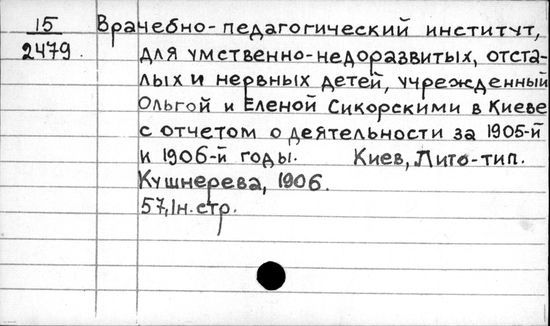 15 Врачебно-педагогический институт,
2479. для умственно-недоразвитых, отста-
лых и нервных детей, учрежденный
Ольгой и Еленой Сикорскими в Киеве
с отчетом о деятельности за 1905-й
и 1906-й годы. Киев, Лито-тип.
Кушнерева, 1906.
57,1н.стр.